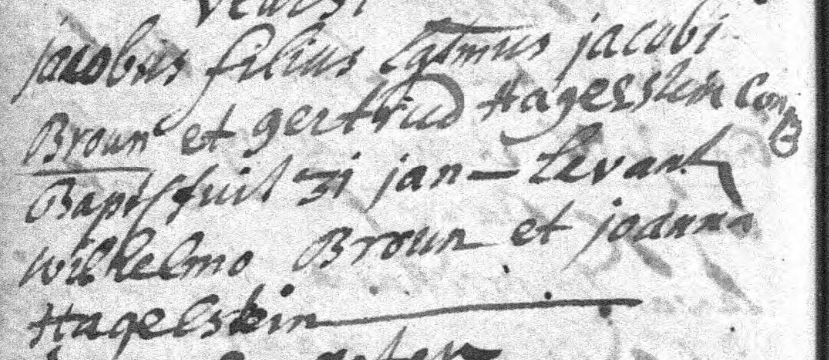 jacobus filius Lgtmus jacobi
Broun et gertrud Hagelstein Conj
Bapt fuit 31 jan – Levant
wilhelmo Broun et joanna
Hagelstein